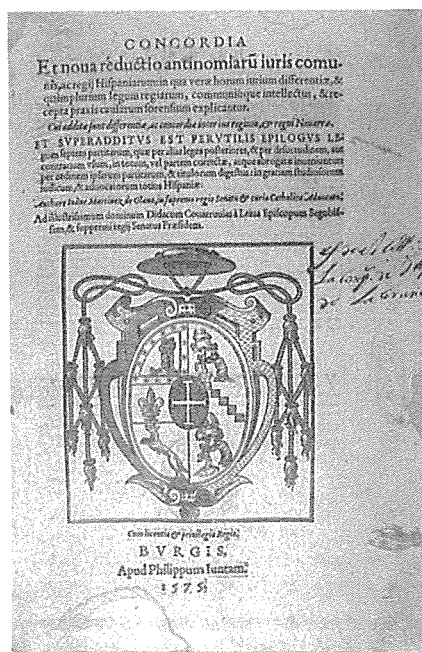 CONCORDIA
Et noua reductio antinomiarũ iuris comu-
nis, ac regij Hispaniarum in qua veræ horum iurium differentiæ, &
quamplurium legum regiarum, communisque intellectus, & re-
cepta praxis causarum forensium explicantur.
Cui additæ sunt differentiæ, ac concordia inter ius regium, & regni Nauarræ.
ET SVPERADDITVS EST PERVTILIS EPILOGVS LE-
gum septem partitarum, quæ per alias leges posteriores, & per desuetudinem, aut
contrarium vsum, in totum, vel partem correctæ, atque abrogatæ inueniuntur
per ordinem ipsarum partitarum, & titulorum digestus: in gratiam studiosorum
iudicum, & aduocatorum totius Hispaniæ.
Auctore Ioāne Martinez de Olano, in supremo regio Senatu & curia Catholica Aduocato.
Ad illustrissimum dominum Didacum Couarruuias à Leiua Episcopum Segobi-
sum, & suppremi regij Senatus Præsidem.
de la
Cum licentia & priuilegio Regio.
BVRGIS,
Apud Philippum Iuntam.
1575.